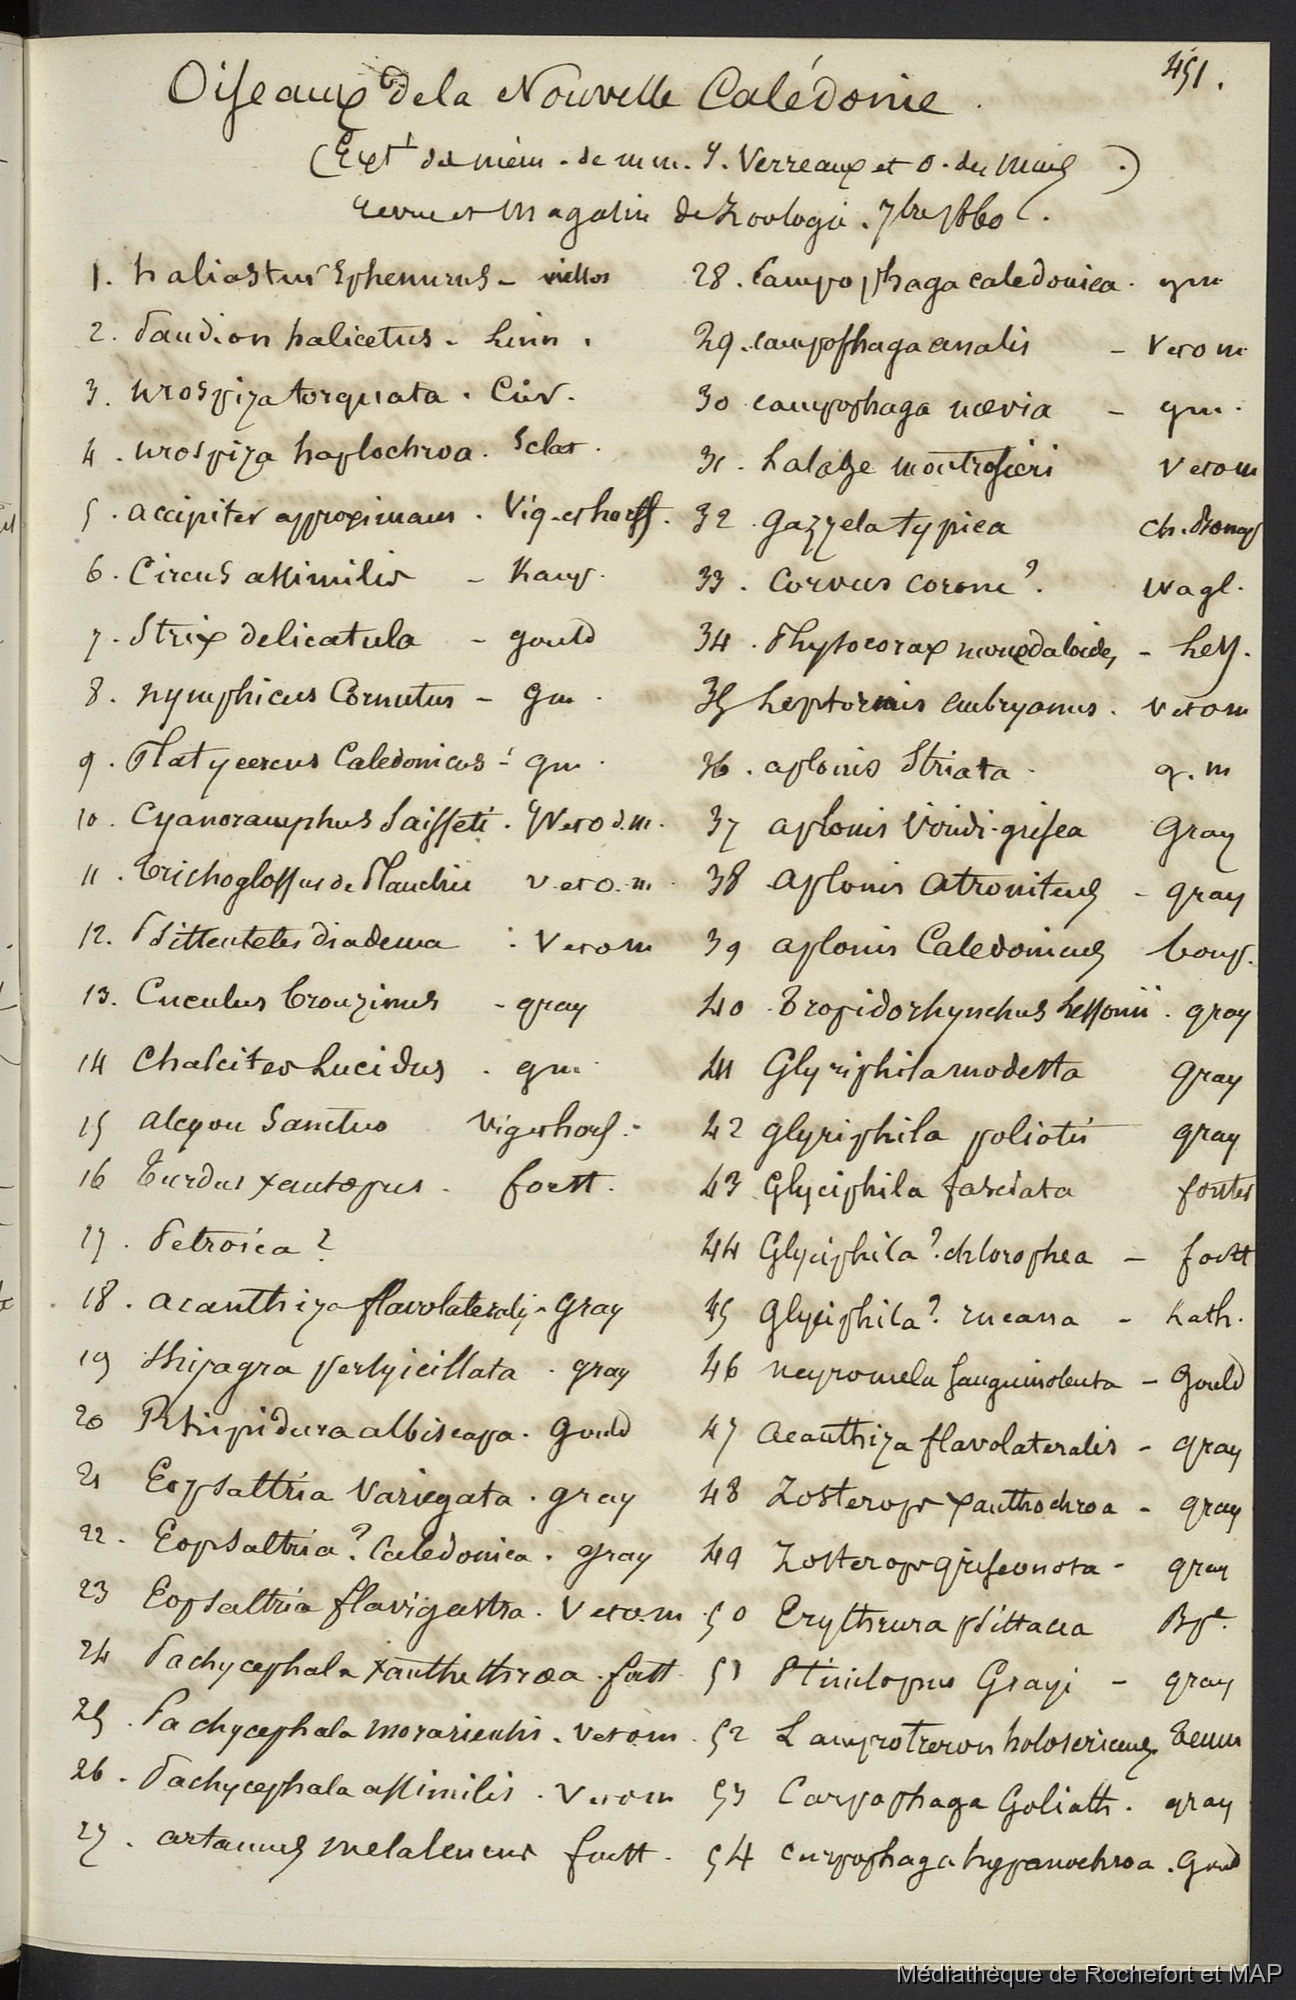 451.
Oiseaux de la Nouvelle Calédonie.
(Ext^t du mém. de mm. J. Verreaux et O. des Murs.)
revue et Magasin de Zoologie. 7bre 1860.
1. haliastur Sphenurus - vieillot
2. Pandion haliœtus - Linn.
3. urospiza torquata. Cuv.
4. urospiza haplochroa. Sclat.
5. accipiter approximans. Vig. et horsf.
6. Circus assimilis - Kaup.
7. Strix delicatula - gould
8. nymphicus Cornutus - gm.
9. Platycercus Caledonicus - gm.
10. Cyanoramphus Saisseti. V et O d. m.
11. Trichoglossus de Planchii v. et o. m.
12. Psitteuteles diadema : V et o m
13. Cuculus bronzinus - gray
14 Chalcites Lucidus. gm.
15 alcyon Sanctus Vig et horsf.
16 Turdus xantopus. forst.
17. Petroica ?
18. acanthiza flavolateralis - Gray
19 Myiagra perspicillata. gray
20 Rhipidura albiscapa. Gould
21 Eopsaltria Variegata. gray
22. Eopsaltria? Caledonica. gray
23 Eopsaltria flavigastra. V et o. m
24 Pachycephala xanthethræa. forst
25. Pachycephala morariensis. V et o m.
26. Pachycephala assimilis. V et o m
27. artamus melaleucus forst.
28. Campophaga caledonica. gm
29. campophaga analis - V et o m
30 campophaga nævia - gm.
31. Lalage montrosieri V et o m
32. Gazzola typica Ch. Bonap
33. Corvus corone?. Wagl.
34. Physocorax moneduloides, - Less.
35 Leptornis aubryanus. V et o m
36. aplonis Striata. g. m
37 aplonis Viridi-grisea Gray
38 aplonis atronitens - gray
39 aplonis Caledonicus bonap.
40. Tropidorhynchus Lessonii. gray
41 Glyciphila modesta gray
42 glyciphila poliotis gray
43 Glyciphila fasciata forster
44 Glyciphila?. chlorophæa - forst
45 Glyciphila? incana - Lath.
46 myzomela sanguinolenta - Gould
47 acanthiza flavolateralis - gray
48 Zosterops xanthochroa - gray
49 Zosterops griseonota - gray
50 Erythrura psittacea Bp^e.
51 Ptinilopus Grayi - gray
52 Lamprotreron holosericeus. Temm
53 Carpophaga Goliath. gray
54 carpophaga hypænochroa. Gould
Médiathèque de Rochefort et MAP